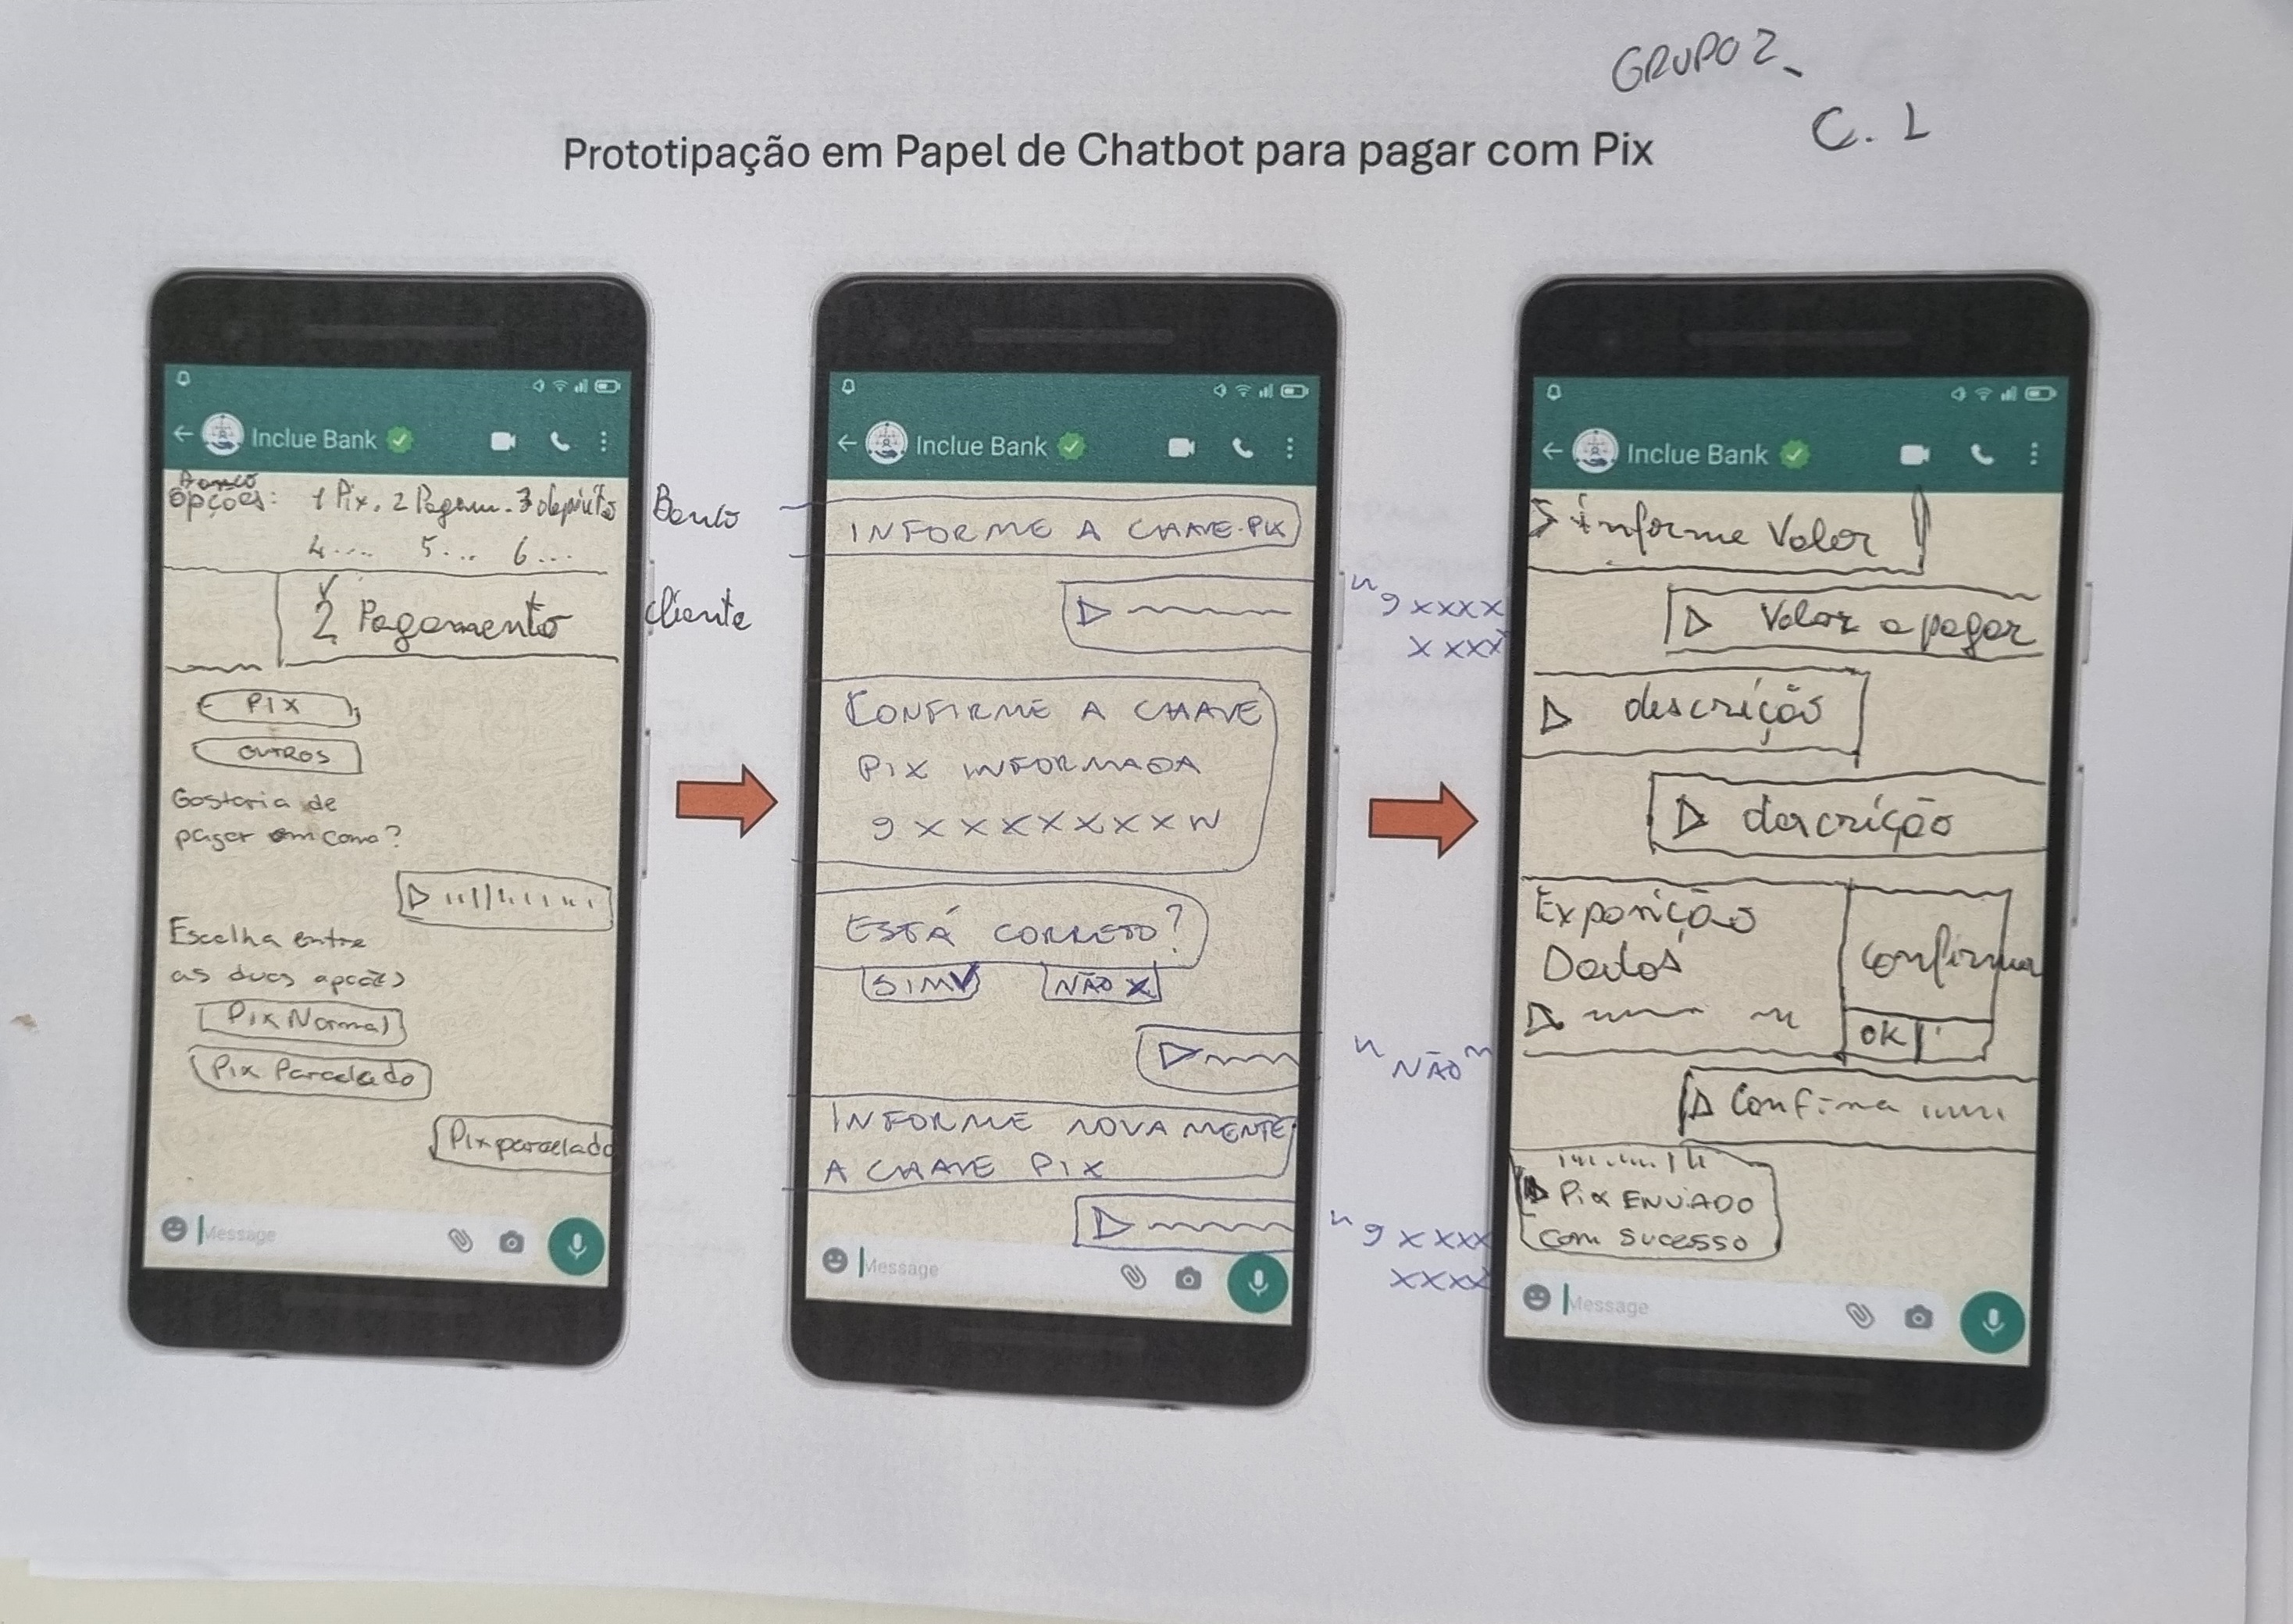 GRUPO 2_
C. 1
Prototipação em Papel de Chatbot para pagar com Pix
Inclue Bank
Banco
Opções: 1 Pix. 2 Pagam. 3 depósito
4.... 5... 6...
2 Pagamento
PIX
OUTROS
Gostaria de
pagar em como?
Escolha entre
as duas opções
Pix Normal
Pix Parcelado
Pix parcelado
Message
Banco
Cliente
Inclue Bank
INFORME A CHAVE-PIX
"9 xxxx
xxxx"
CONFIRME A CHAVE
PIX INFORMADA
9 x x x x x x x N
ESTÁ CORRETO?
SIM
NÃO X
"NÃO"
INFORME NOVAMENTE
A CHAVE PIX
"9 xxxx
xxxx
Message
Inclue Bank
informe Valor
Valor a pagar
descrição
descrição
Exposição
Dados
Confirma
OK
Confirma
Pix ENVIADO
com sucesso
Message